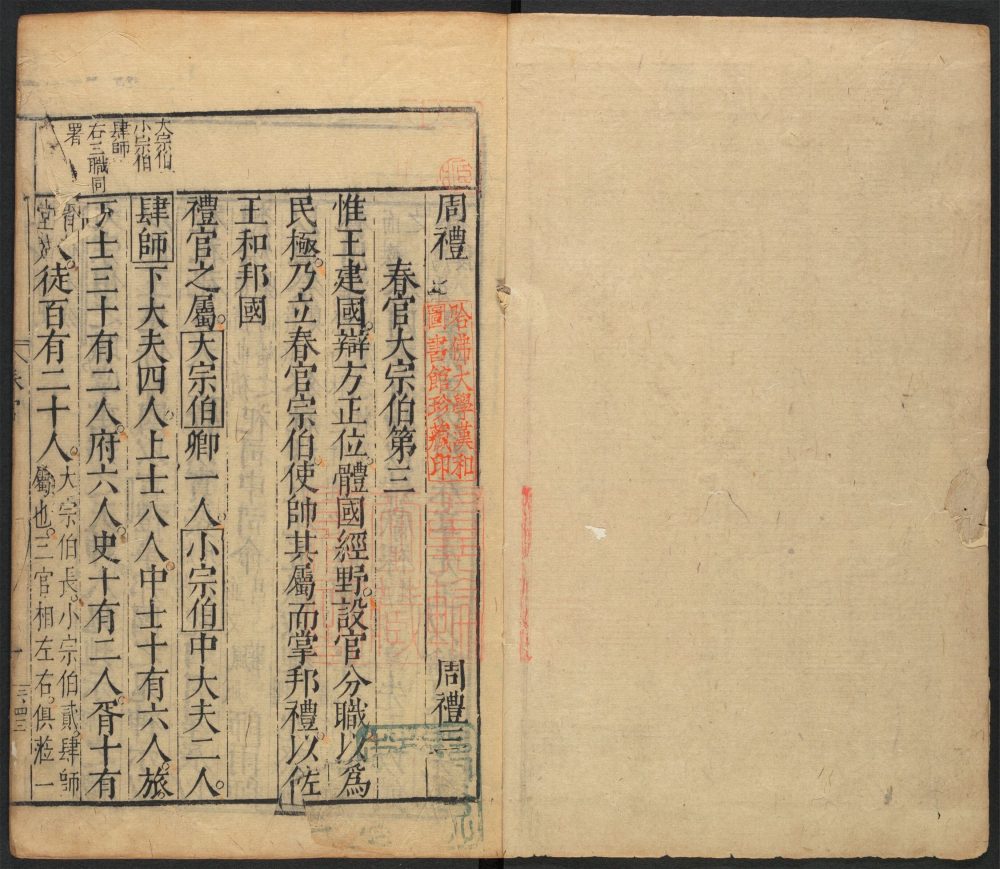 大宗伯
小宗伯
肆師
右三職同
署
周禮 周禮三
哈佛大學漢和
圖書館珍藏印
春官大宗伯第三
惟王建國辯方正位體國經野設官分職以為
民極乃立春官宗伯使帥其屬而掌邦禮以佐
王和邦國
禮官之屬大宗伯卿一人小宗伯中大夫二人
肆師下大夫四人上士八人中士十有六人旅
下士三十有二人府六人史十有二人胥十有
二人徒百有二十人大宗伯長小宗伯貳肆師
屬也三官相左右俱涖一
堂